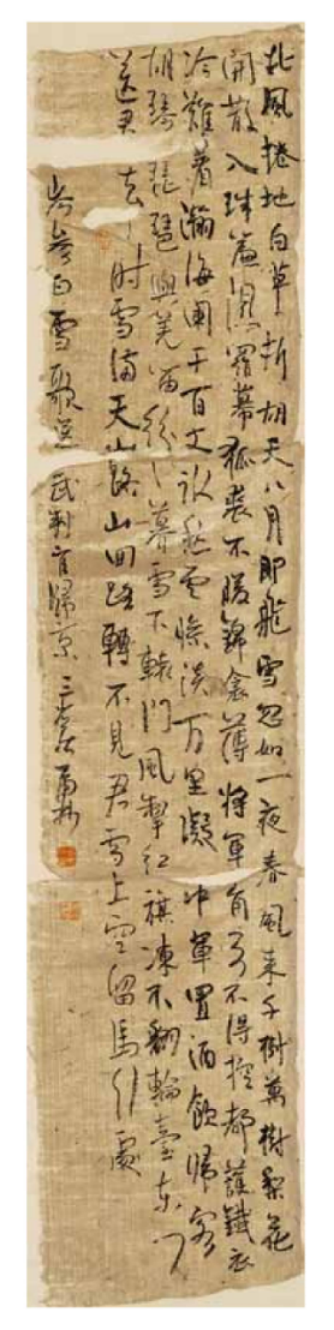 北風捲地白草折胡天八月即飛雪忽如一夜春風來千樹萬樹梨花
開散入珠簾濕羅幕狐裘不暖錦衾薄將軍角弓不得控都護鐵衣
冷難着瀚海闌干百丈冰愁雲慘淡萬里凝中軍置酒飲歸客
胡琴琵琶與羌笛紛〻暮雪下轅門風掣紅旗凍不翻輪臺東門
送君去〻時雪滿天山路山回路轉不見君雪上空留馬行處
岑參白雪歌送武判官歸京